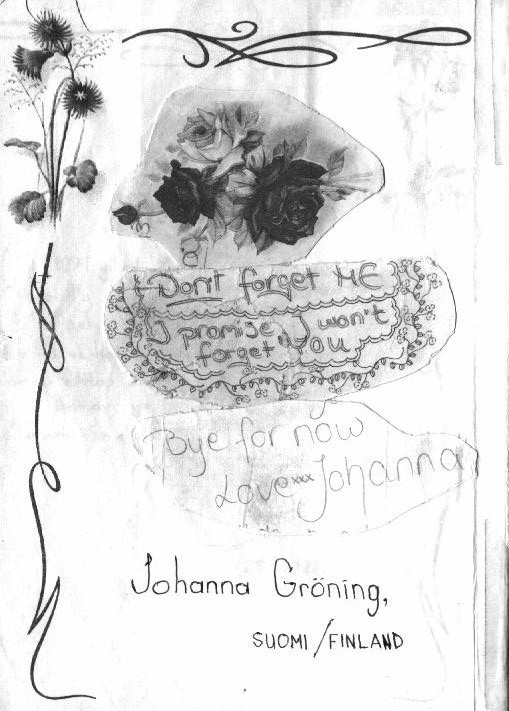 Don't forget ME
I promise, I won't
forget YOU
Bye for now
Love xxx Johanna
Johanna Gröning,
SUOMI/FINLAND